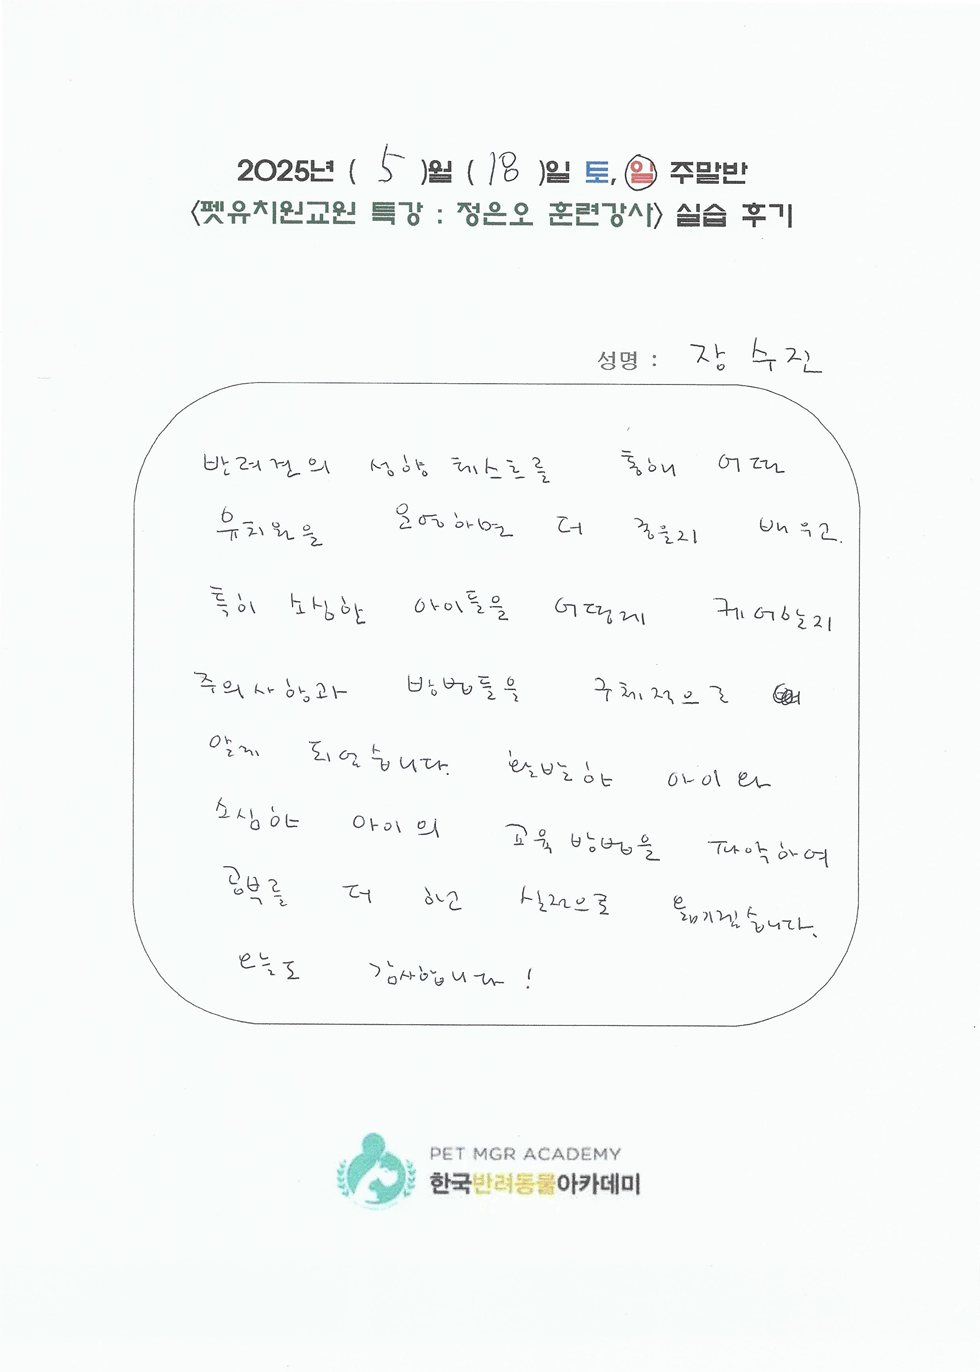 2025년 ( 5 )월 ( 18 )일 토, 일 주말반
<펫유치원교원 특강 : 정은오 훈련강사> 실습 후기
성명 : 장수진
반려견의 성향 테스트를 통해 어떤
유치원을 운영하면 더 좋을지 배우고.
특히 소심한 아이들을 어떻게 케어할지
주의사항과 방법들을 구체적으로
알게 되었습니다. 활발한 아이와
소심한 아이의 교육 방법을 파악하여
공부를 더 하고 실전으로 옮기겠습니다.
오늘도 감사합니다!
PET MGR ACADEMY
한국반려동물아카데미